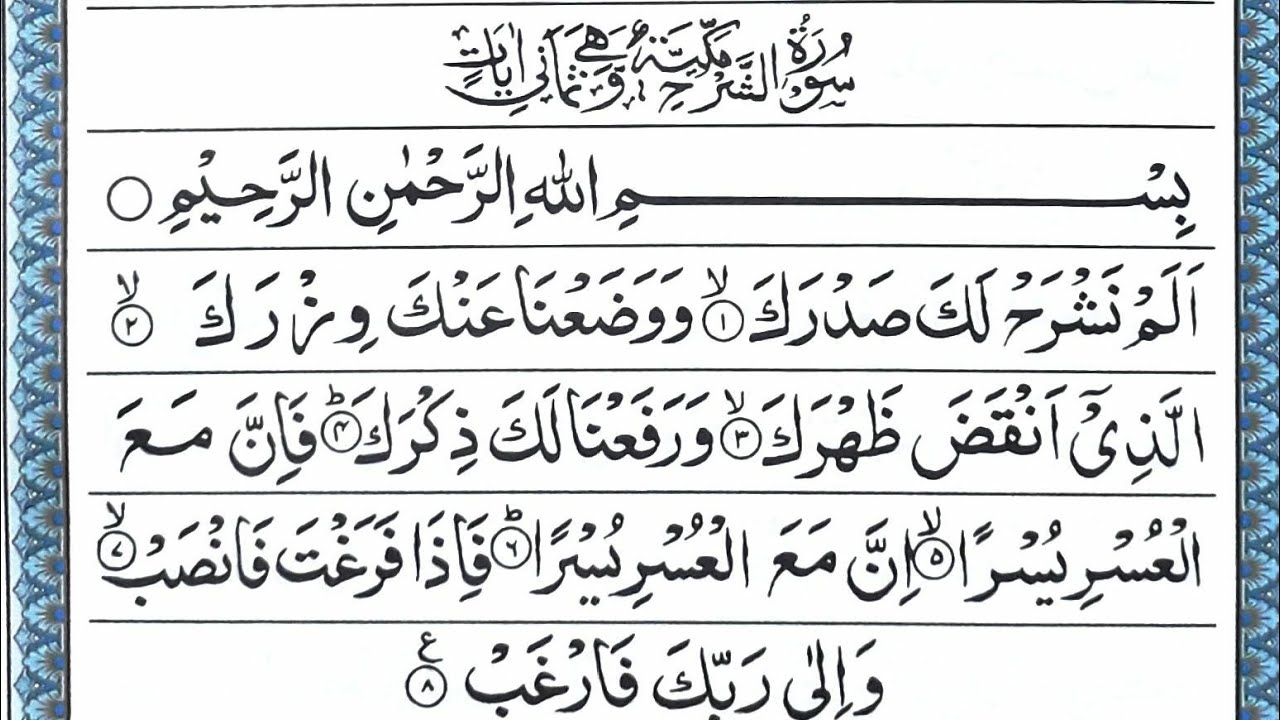 سُوْرَةُ الشَّرْحِ مَكِّيَّةٌ وَّهِيَ ثَمَانِيْ اٰيَاتٍ
بِسْمِ اللهِ الرَّحْمٰنِ الرَّحِيْمِ ○
اَلَمْ نَشْرَحْ لَكَ صَدْرَكَ ۙ﴿١﴾ وَوَضَعْنَا عَنْكَ وِزْرَكَ ۙ﴿٢﴾
الَّذِيْٓ اَنْقَضَ ظَهْرَكَ ۙ﴿٣﴾ وَرَفَعْنَا لَكَ ذِكْرَكَ ؕ﴿۴﴾ فَاِنَّ مَعَ
الْعُسْرِ يُسْرًا ۙ﴿۵﴾ اِنَّ مَعَ الْعُسْرِ يُسْرًا ؕ﴿۶﴾ فَاِذَا فَرَغْتَ فَانْصَبْ ۙ﴿۷﴾
وَاِلٰى رَبِّكَ فَارْغَبْ ﴿۸﴾ ع